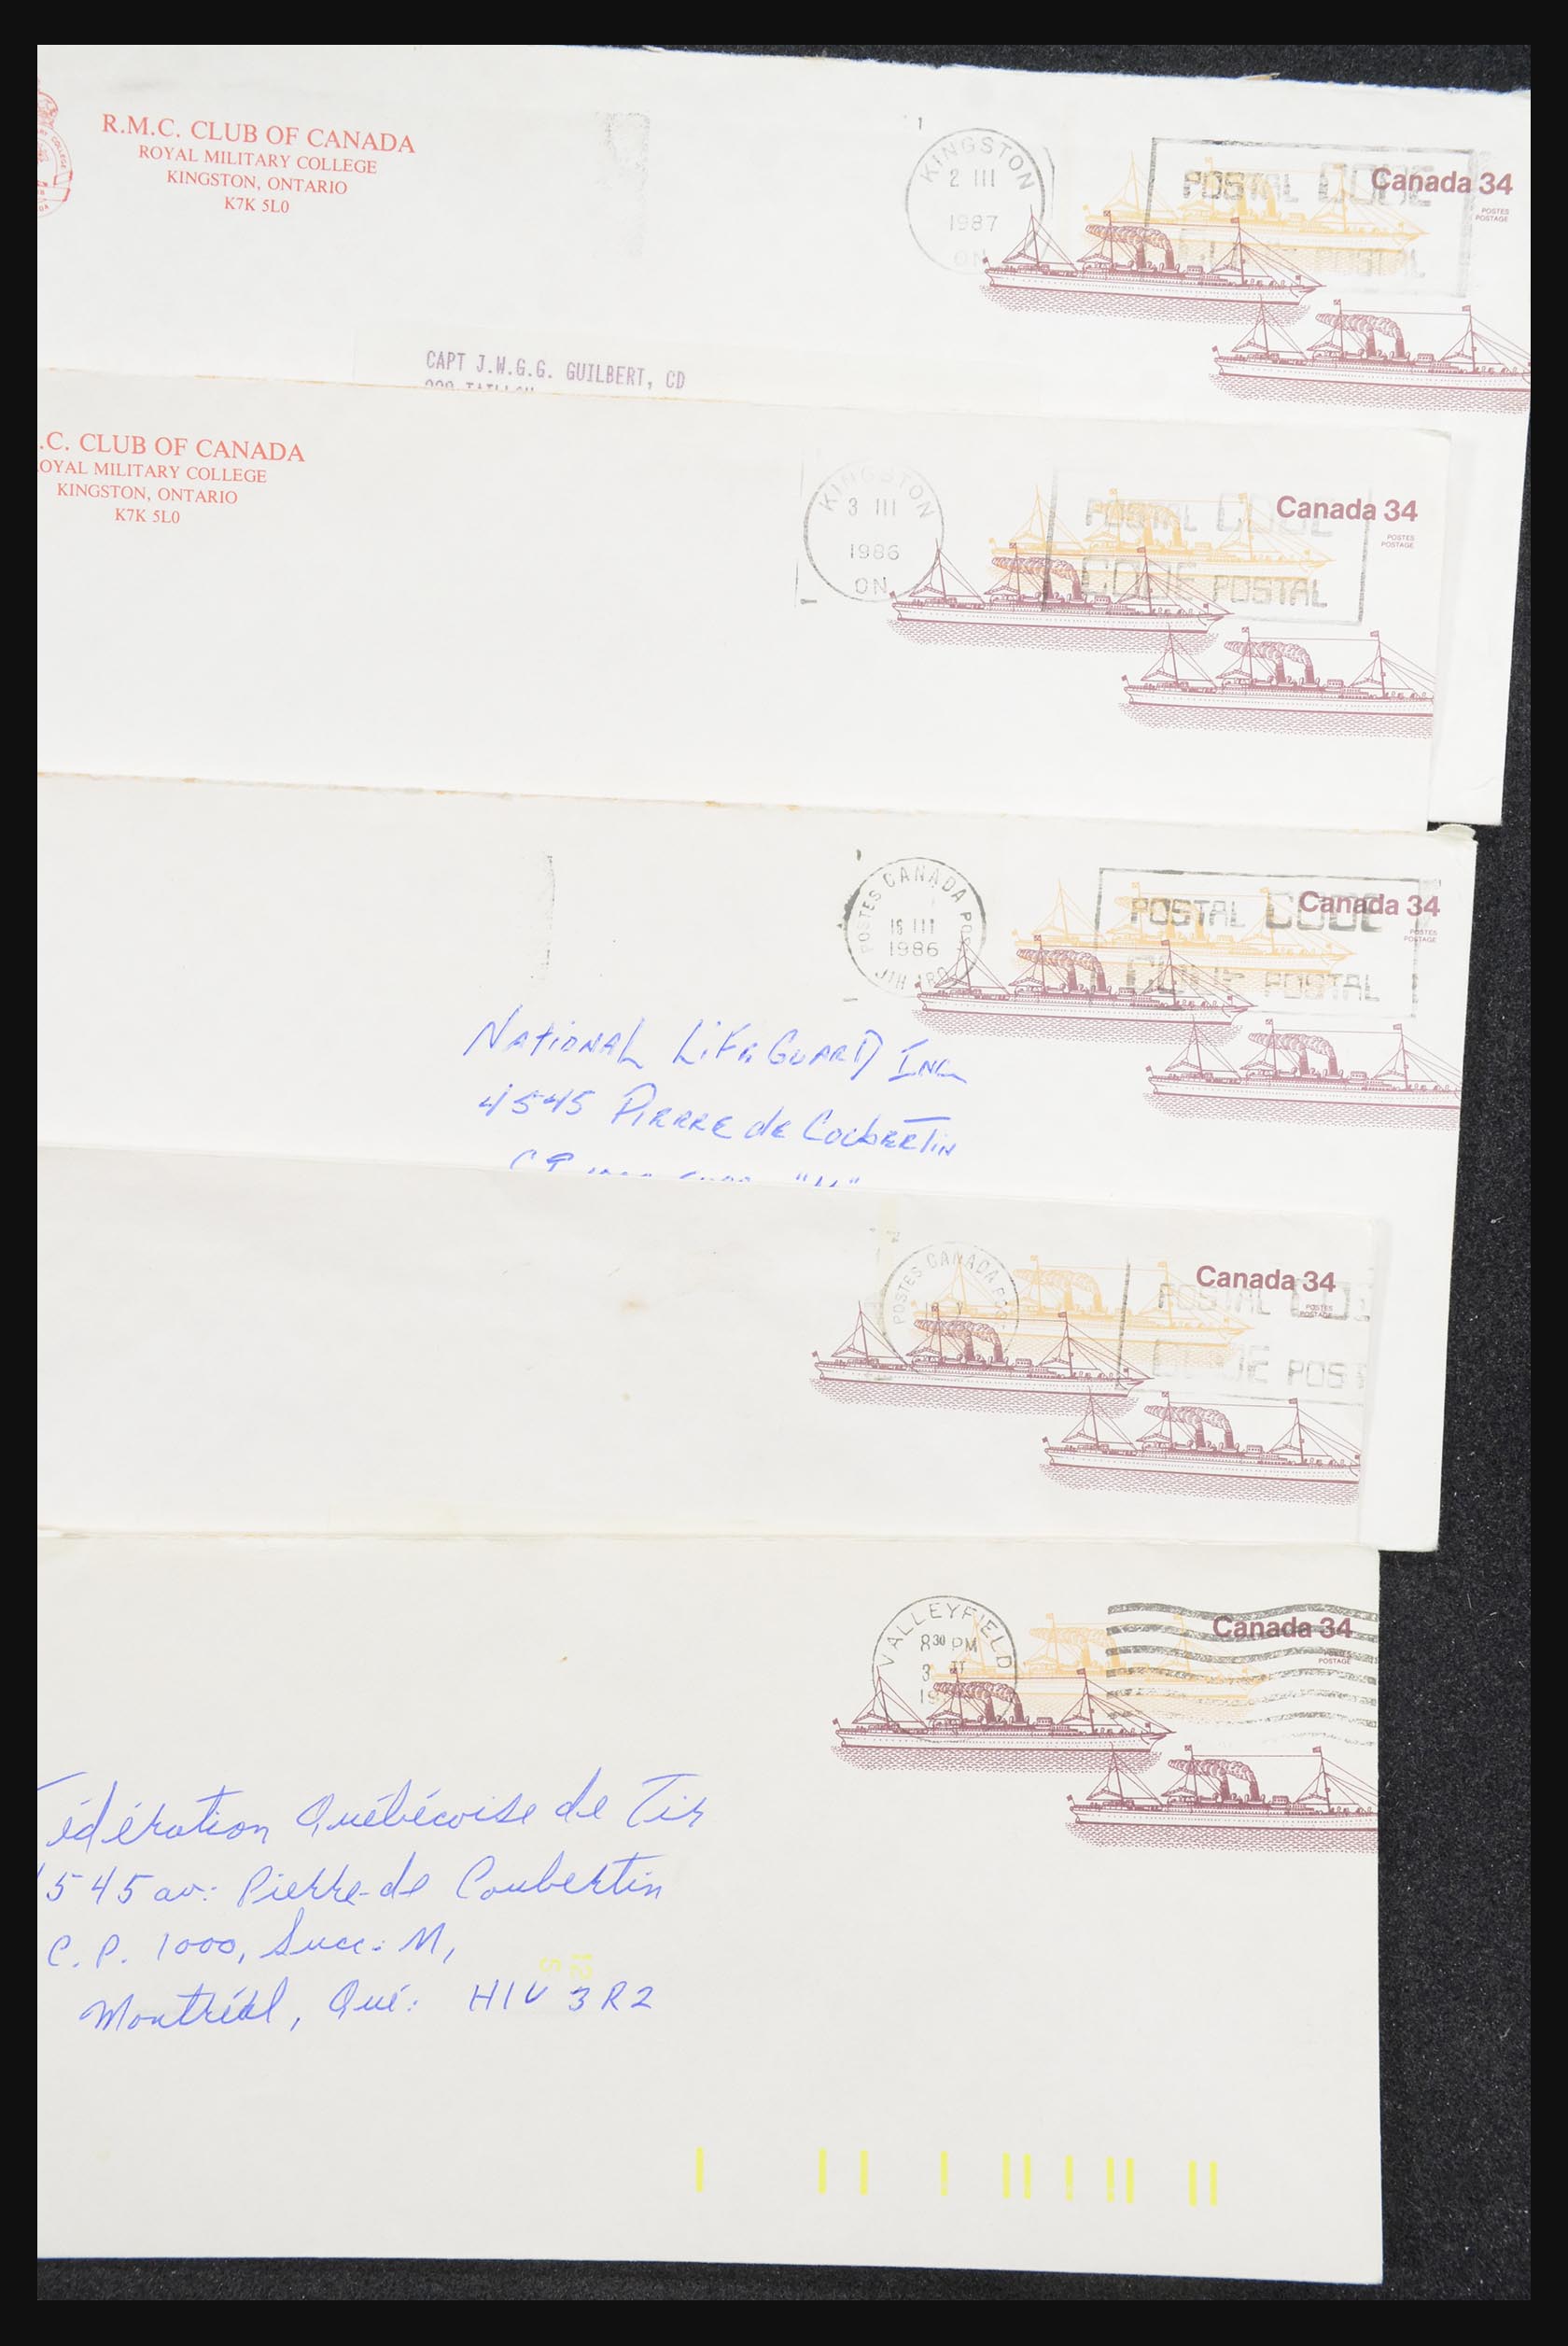 R.M.C. CLUB OF CANADA
ROYAL MILITARY COLLEGE
KINGSTON, ONTARIO
K7K 5L0
KINGSTON
2 III
1987
ON
POSTAL CODE
POSTAL
Canada 34
POSTES
POSTAGE
CAPT J.W.G.G. GUILBERT, CD
.C. CLUB OF CANADA
OYAL MILITARY COLLEGE
KINGSTON, ONTARIO
K7K 5L0
KINGSTON
3 III
1986
ON
POSTAL CODE
CODE POSTAL
Canada 34
POSTES
POSTAGE
POSTES CANADA POS
18 III
1986
POSTAL CODE
CODE POSTAL
Canada 34
POSTES
POSTAGE
NATIONAL LIFEGUARD INC
4545 PIERRE de COUBERTIN
POSTES CANADA POS
POSTAL COD
CODE POST
Canada 34
POSTES
POSTAGE
VALLEYFIELD
830 PM
3
19
Canada 34
POSTAGE
édération Québécoise de Tir
545 av: Pierre-de Coubertin
C.P. 1000, Succ: M,
S 12
Montréal, Qué: H1V 3R2